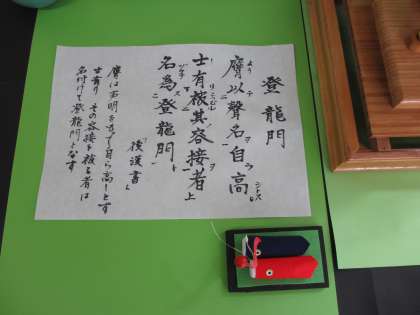 登龍門
膺以聲名自高
士有被其容接者
名為登龍門
後漢書
膺は声明を以て自ら高しとす
士有り その容接を被る者は
名付けて登龍門となす